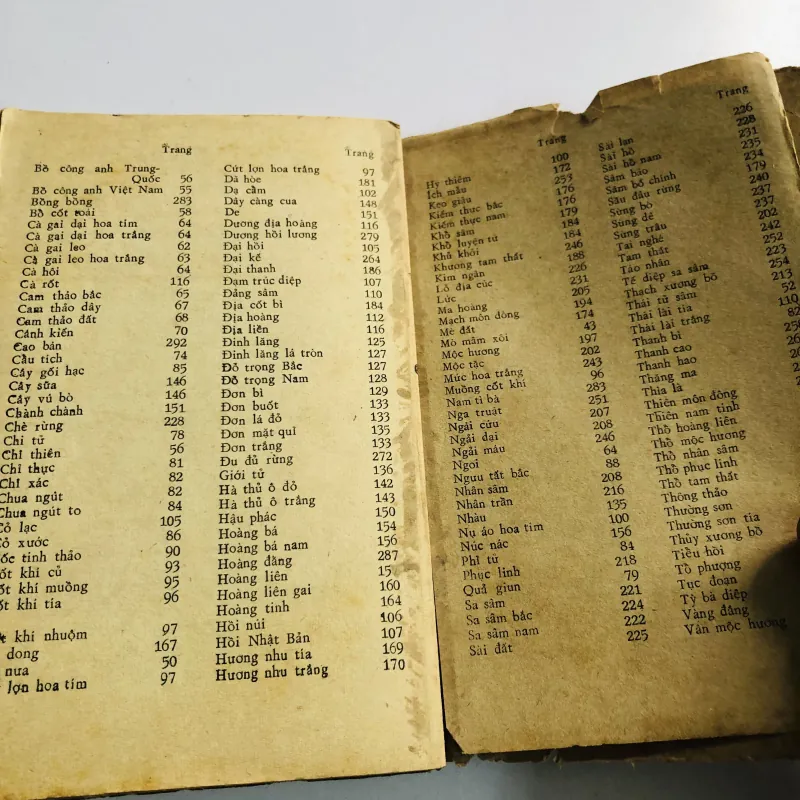 Trang
Bồ công anh Trung-
Quốc 56
Bồ công anh Việt Nam 55
Bồng bồng 283
Bồ cốt toái 58
Cà gai dại hoa tím 64
Cà gai dại hoa trắng 64
Cà gai leo 62
Cà gai leo hoa trắng 63
Cà hôi 64
Cà rốt 116
Cam thảo bắc 65
Cam thảo dây 67
Cam thảo đất 68
Cánh kiến 70
Cao bản 292
Cẩu tích 74
Cây gối hạc 85
Cây sữa 146
Cây vú bò 146
Chành chành 151
Chè rừng 228
Chi tử 78
Chỉ thiên 56
Chỉ thực 81
Chỉ xác 82
Chua ngút 82
Chua ngút to 84
Cỏ lạc 105
Cỏ xước 86
ốc tinh thảo 90
ốt khí củ 93
ốt khí muồng 95
ốt khí tía 96
khí nhuộm 97
dong 167
nưa 50
lợn hoa tím 97
Trang
Cứt lợn hoa trắng 97
Dã hòe 181
Dạ cẩm 102
Dây càng cua 148
De 151
Dương địa hoàng 116
Dương hồi lương 279
Đại hồi 105
Đại kế 264
Đại thanh 186
Đạm trúc diệp 107
Đảng sâm 110
Địa cốt bì 184
Địa hoàng 112
Địa liền 116
Đinh lăng 125
Đinh lăng lá tròn 127
Đỗ trọng Bắc 127
Đỗ trọng Nam 128
Đơn bì 129
Đơn buốt 133
Đơn lá đỏ 133
Đơn mặt quỉ 135
Đơn trắng 133
Đu đủ rừng 272
Giới tử 136
Hà thủ ô đỏ 142
Hà thủ ô trắng 143
Hậu phác 150
Hoàng bá 154
Hoàng bá nam 156
Hoàng đằng 287
Hoàng liên 15
Hoàng liên gai 160
Hoàng tinh 164
Hồi núi 106
Hồi Nhật Bản 107
Hương nhu tía 169
Hương nhu trắng 170
Trang
Hy thiêm 100
Ích mẫu 172
Keo giậu 253
Kiểm thực bắc 176
Kiểm thực nam 176
Khổ sâm 179
Khổ luyện tử 184
Khủ khởi 184
Khương tam thất 246
Kim ngân 188
Lô địa cúc 226
Lức 231
Ma hoàng 205
Mạch môn đông 194
Mè đất 174
Mò mâm xôi 43
Mộc hương 197
Mộc tặc 202
Mức hoa trắng 243
Muồng cốt khí 96
Nam tì bà 283
Nga truật 251
Ngải cứu 207
Ngải dại 208
Ngải máu 246
Ngoi 64
Ngưu tất bắc 88
Nhân sâm 208
Nhân trần 216
Nhàu 135
Nụ áo hoa tím 100
Núc nác 156
Phỉ tử 84
Phục linh 218
Quả giun 79
Sa sâm 221
Sa sâm bắc 224
Sa sâm nam 222
Sài đất 225
Trang
Sài lan 226
Sài hồ 228
Sài hồ nam 231
Sâm báo 235
Sâm bố chính 234
Sầu đâu rừng 179
Sừng bò 240
Sừng dê 237
Sừng trâu 237
Tai nghé 202
Tam thất 242
Táo nhân 252
Tế diệp sa sâm 223
Thạch xương bồ 254
Thái tử sâm 213
Thài lài tía 52
Thài lài trắng 110
Thanh bì 82
Thanh cao
Thanh hao
Thăng ma
Thìa là
Thiên môn đông
Thiên nam tinh
Thổ hoàng liên
Thổ mộc hương
Thổ nhân sâm
Thổ phục linh
Thổ tam thất
Thông thảo
Thường sơn
Thường sơn tía
Thủy xương bồ
Tiểu hồi
Tổ phượng
Tục đoạn
Tỳ bà diệp
Vàng đắng
Vân mộc hương